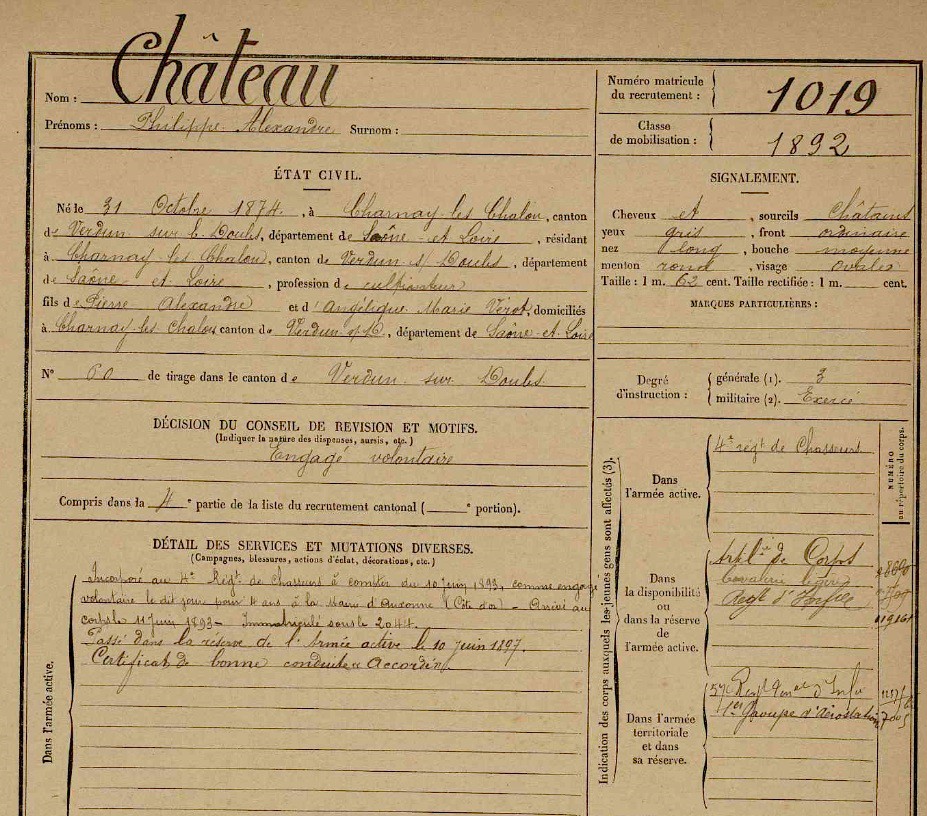 Nom : Château
Prénoms : Philippe Alexandre Surnom :
ÉTAT CIVIL.
Né le 31 Octobre 1874, à Charnay-les-Chalon, canton
de Verdun sur le Doubs, département de Saône et Loire, résidant
à Charnay les Chalon, canton de Verdun s/ Doubs, département
de Saône et Loire, profession de cultivateur
fils de Pierre Alexandre et d'Angélique Marie Verot, domiciliés
à Charnay-les-Chalon canton de Verdun s/ D, département de Saône-et-Loire
N° 60 de tirage dans le canton de Verdun sur Doubs
DÉCISION DU CONSEIL DE REVISION ET MOTIFS.
(Indiquer la nature des dispenses, sursis, etc.)
Engagé volontaire
Compris dans la 4e partie de la liste du recrutement cantonal ( e portion).
DÉTAIL DES SERVICES ET MUTATIONS DIVERSES.
(Campagnes, blessures, actions d'éclat, décorations, etc.)
Dans l'armée active.
Incorporé au 4e Régt de Chasseurs à compter du 10 juin 1893, comme engagé
volontaire le dit jour pour 4 ans à la Mairie d'Auxonne (Côte d'or) - Arrivé au
corps le 11 juin 1893 - Immatriculé sous le 2044.
Passé dans la réserve de l'Armée active le 10 juin 1897.
Certificat de bonne conduite "Accordé".
Numéro matricule
du recrutement : 1019
Classe
de mobilisation : 1892
SIGNALEMENT.
Cheveux et, sourcils Châtains
yeux gris, front ordinaire
nez long, bouche moyenne
menton rond, visage ovale
Taille : 1 m. 62 cent. Taille rectifiée : 1 m. cent.
MARQUES PARTICULIÈRES :
Degré
d'instruction :
générale (1). 3
militaire (2). Exercé
Indication des corps auxquels les jeunes gens sont affectés (3).
NUMÉRO
au répertoire du corps.
Dans
l'armée active.
4e régt de Chasseurs
Dans
la disponibilité
ou
dans la réserve
de
l'armée active.
de Corps
Cavalerie légère
Regt d'Infie
Dans l'armée
territoriale
et dans
sa réserve.
57e Regt d'Infie
1er Groupe d'Aérostation